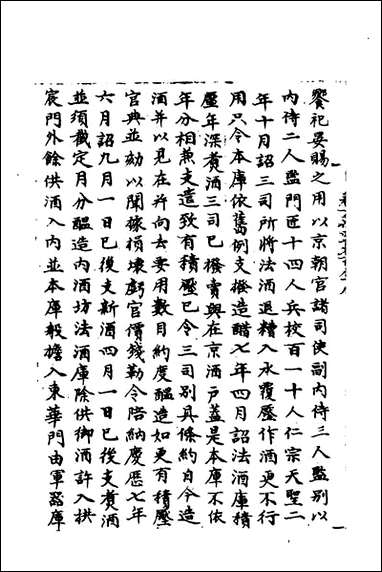 饗祀晏賜之用以京朝官諸司使副内侍三人監別以
内侍二人監門匠十四人兵校百一十人仁宗天聖二
年十月詔三司所將法酒退糟入水覆壓作酒更不行
用只令本庫依舊例支撥造醋七年四月詔法酒庫積
壓年深煑酒三司已撥賣與在京酒戸蓋是本庫不依
年分相兼支遣致有積壓已令三司別具條約自今造
酒并以見在并向去要用數目約度醖造如更有積壓
官典並劾以聞據損壞虧官價錢勒令陪納慶歷七年
六月詔九月一日已後支新酒四月一日已後支煑酒
並須截定月分醖造内酒坊法酒庫除供御酒許入拱
宸門外餘供酒入内並本庫般擔入東華門由軍器庫